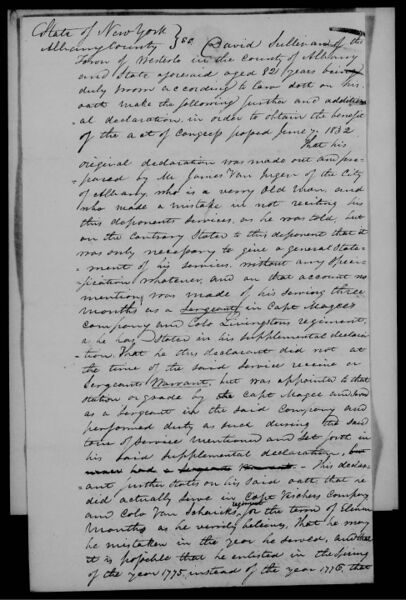 State of New York } ss.
Albany County } David Sullivan of the
Town of Westerlo in the County of Albany
and State aforesaid aged 82 years being
duly sworn according to law doth on his
oath make the following further and addition
al declaration in order to obtain the benefit
of the act of Congress passed June 7, 1832.
That his
original declaration was made out and pre-
pared by Mr James Van Ingen of the City
of Albany, who is a very Old Man, and
who made a mistake in not reciting his
this deponents services, as he was told, but
on the contrary stated to this deponent that it
was only necessary to give a general state-
ment of his services, without any speci-
fication whatever, and on that account no
mention was made of his serving three
months as a Sergeant in Capt Magees
company and Colo Livingstons regiment,
as he has stated in his supplemental declara-
tion. That he this declarant did not at
the time of the said service receive a
Sergeants Warrant, but was appointed to that
station or grade by Capt Magee and
as a Sergeant in the said Company and
performed duty as such during the said
term of service mentioned and set forth in
his said supplemental declaration,
This declar-
ant further states on his said oath that he
did actually serve in Capt Vischers Company
and Colo Van Schaicks regiment for the term of Eleven
Months as he verily believes, That he may
be mistaken in the year he served, and that
it is possible that he enlisted in the spring
of the year 1775, instead of the year 1776, that